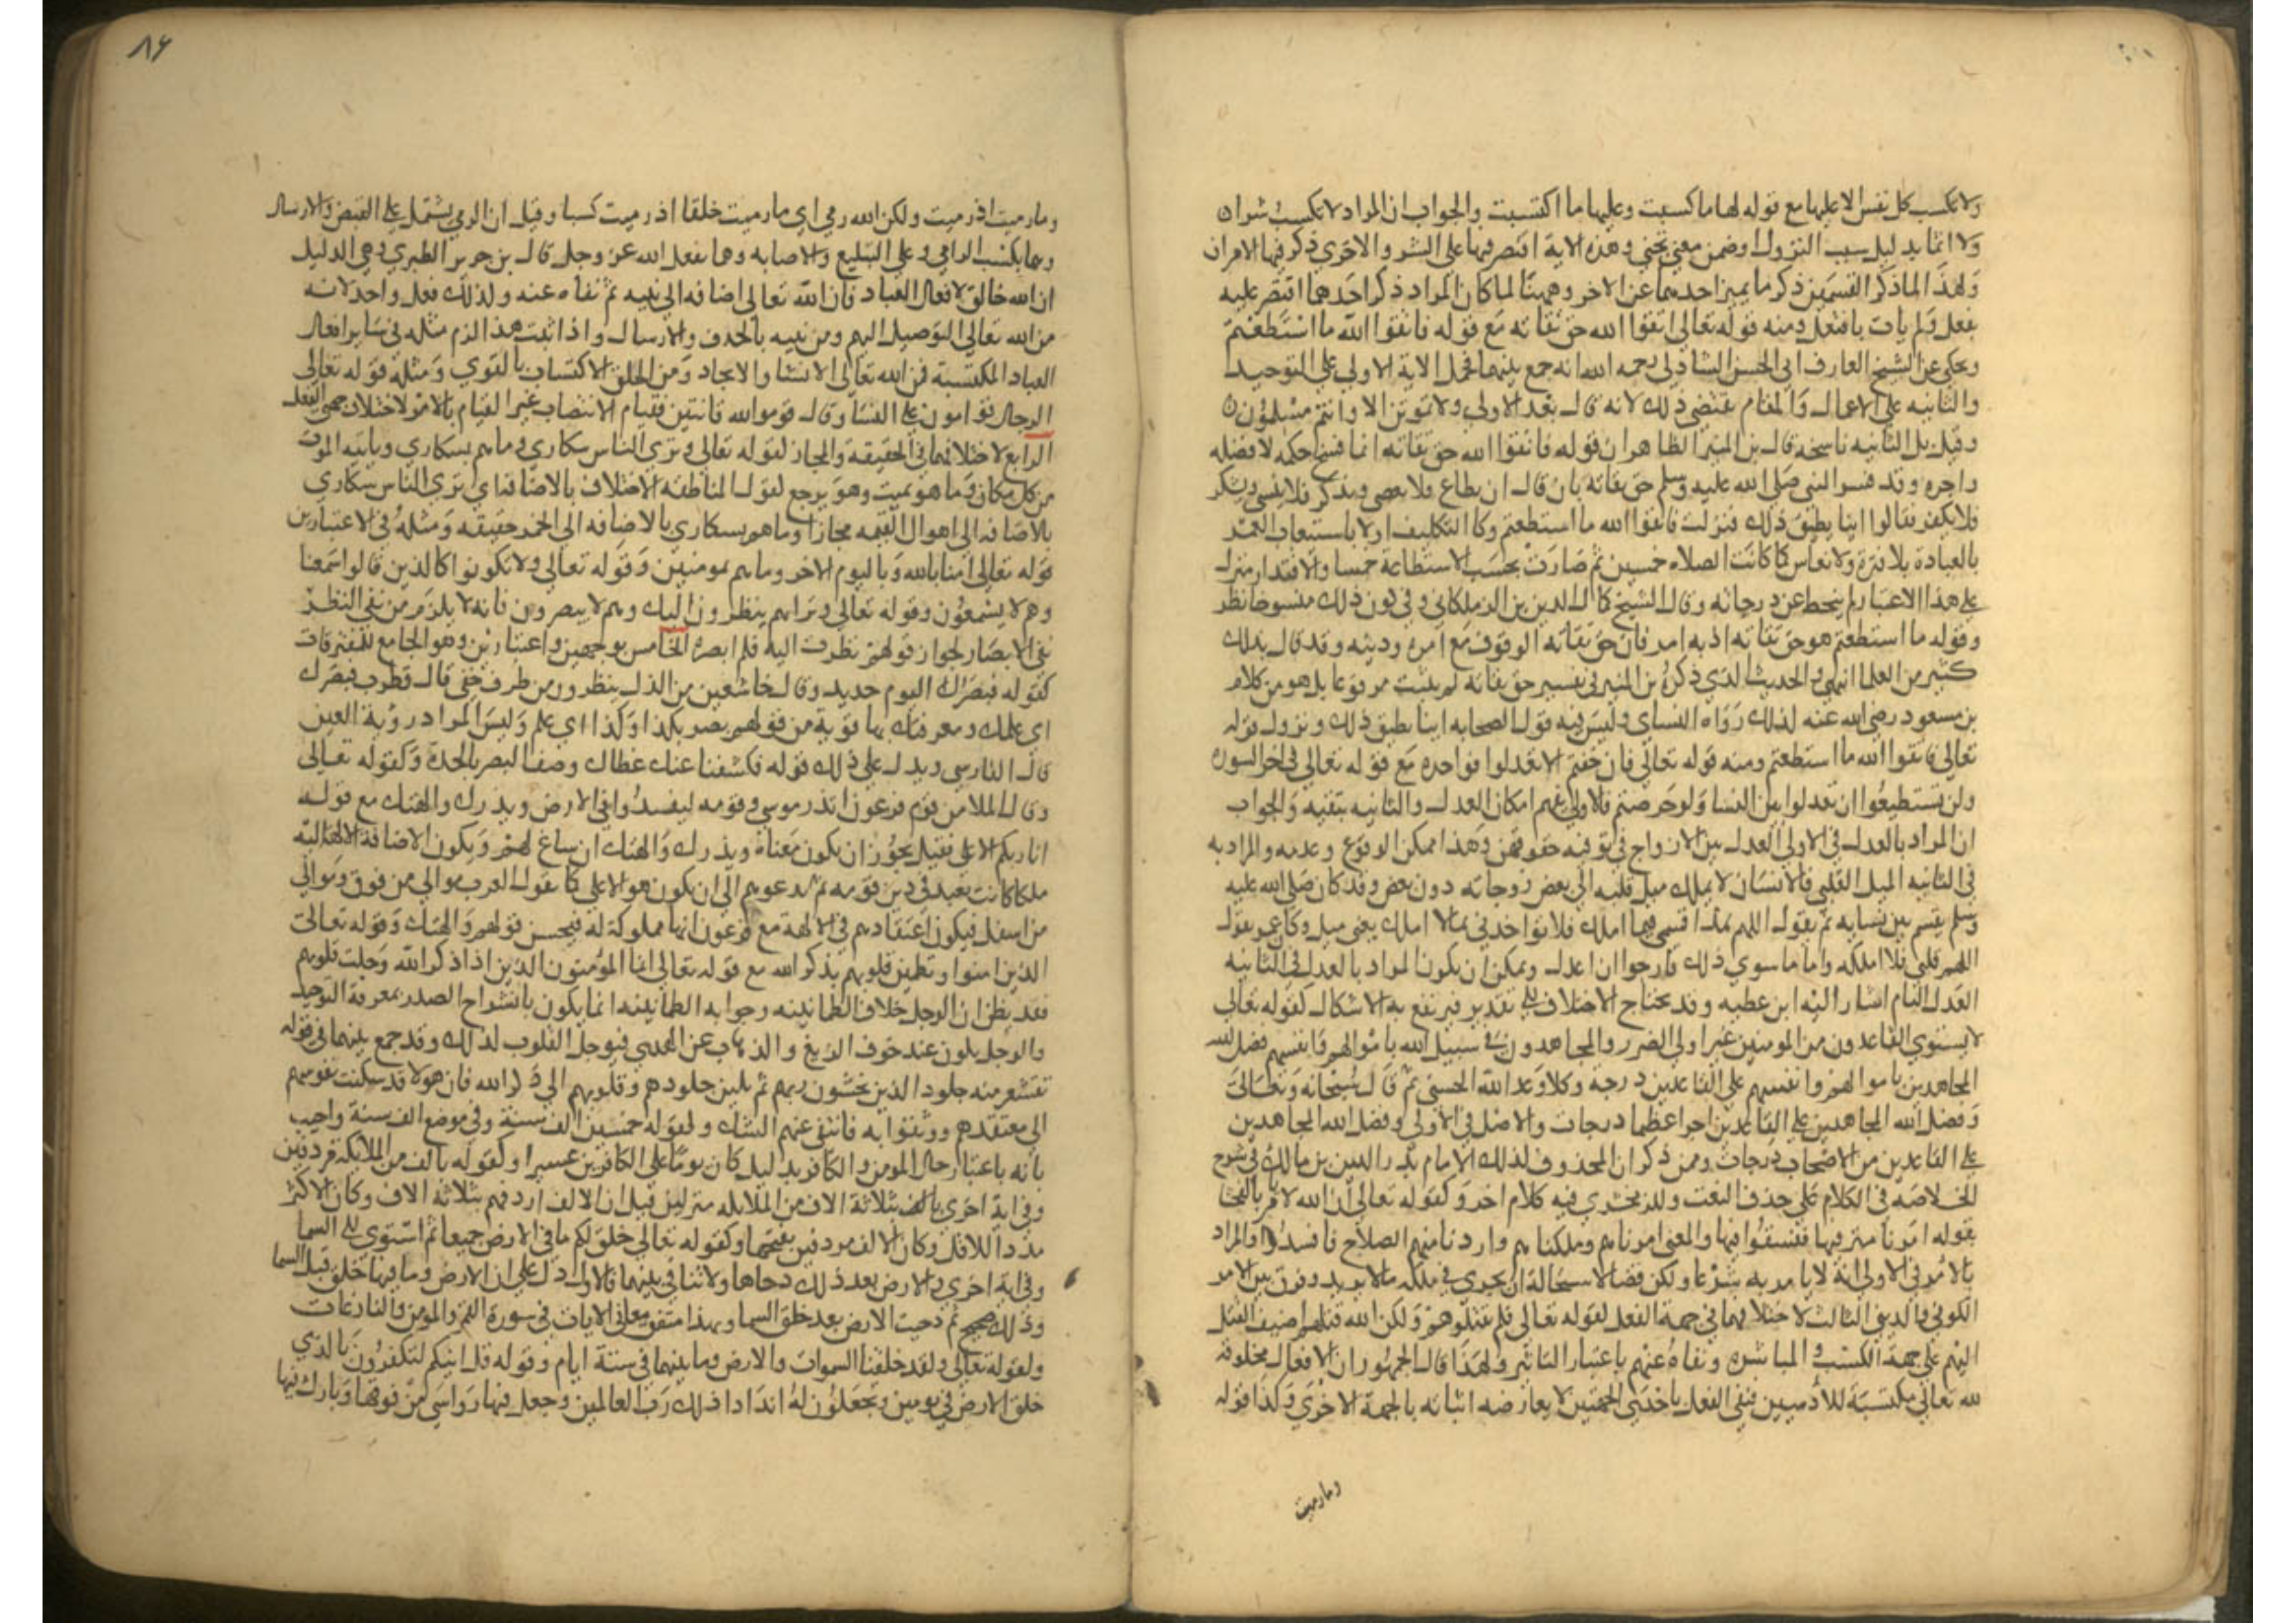 ولا تكسب كل نفس الا عليها مع قوله لها ما كسبت وعليها ما اكتسبت والجواب ان المراد لا تكسب شرا ن
ولا اثما بدليل سبب النزول او ضمن معنى تجنى وهذه الاية اقتصر فيها على الشر والاخرى ذكر فيها الامران
ولهذا لما ذكر القسمين ذكر ما يميز احدهما عن الاخر وههنا لما كان المراد ذكر احدهما اقتصر عليه
بفعل ولم يات بافتعل ومنه قوله تعالى اتقوا الله حق تقاته مع قوله فاتقوا الله ما استطعتم
وحكى عن الشيخ العارف ابي الحسن الشاذلي رحمه الله انه جمع بينهما فحمل الاية الاولى على التوحيد
والثانيه على الاعمال والمقام يقتضي ذلك لانه قال بعد الاولى ولا تموتن الا وانتم مسلمون ن
وقيل بل الثانيه ناسخه قال بن المنير الظاهر ان قوله فاتقوا الله حق تقاته انما فسخ حكمه لا فضله
واجره وقد فسر النبي صلى الله عليه وسلم حق تقاته بان قال ان يطاع فلا يعصى ويذكر فلا ينسى ويشكر
فلا يكفر فقالوا اينا يطيق ذلك فنزلت فاتقوا الله ما استطعتم وكان التكليف اولا باستيعاب العمر
بالعبادة بلا فترة ولا نعاس كما كانت الصلاه خمسين ثم صارت بحسب الاستطاعة خمسا والاقتدار منزل
على هذا الاعتبار لم ينحط عن درجاته وقال الشيخ كمال الدين بن الزملكاني وفي كون ذلك منسوخا نظر
وقوله ما استطعتم هو حق تقاته اذ به امر فان حق تقاته الوقوف مع امره ودينه وقد قال بذلك
كثير من العلما انتهى والحديث الذي ذكره بن المنير في تفسير حق تقاته لم يثبت مرفوعا بل هو من كلام
بن مسعود رضي الله عنه لذلك رواه النساي وليس فيه قول الصحابه اينا يطيق ذلك ونزول قوله
تعالى فاتقوا الله ما استطعتم ومنه قوله تعالى فان خفتم الا تعدلوا فواحده مع قوله تعالى في اخر السوره
ولن تستطيعوا ان تعدلوا بين النسا ولو حرصتم فالاولى تفهم امكان العدل والثانيه تنفيه والجواب
ان المراد بالعدل في الاولى العدل بين الازواج في توفيه حقوقهن وهذا ممكن الوقوع وعدمه والمراد به
في الثانيه الميل القلبي فالانسان لا يملك ميل قلبه الى بعض زوجاته دون بعض وقد كان صلى الله عليه
وسلم يقسم بين نسايه ثم يقول اللهم هذا قسمي فيما املك فلا تواخذني بما لا املك يعني ميل وكان عمر يقول
اللهم قلبي فلا املكه واما ما سوى ذلك فارجوا ان اعدل ويمكن ان يكون المراد بالعدل في الثانيه
العدل التام اشار اليه ابن عطيه وقد يحتاج الاختلاف الى تقدير فيرتفع به الاشكال كقوله تعالى
لا يستوي القاعدون من المومنين غير اولي الضرر والمجاهدون في سبيل الله باموالهم وانفسهم فضل الله
المجاهدين باموالهم وانفسهم على القاعدين درجة وكلا وعد الله الحسنى ثم قال سبحانه وتعالى
وفضل الله المجاهدين على القاعدين اجرا عظيما درجات والاصل في الاولى وفضل الله المجاهدين
على القاعدين من الاصحاب درجات وممن ذكر ان المحذوف لذلك الامام بدر الدين بن مالك في شرح
الخلاصه في الكلام على حذف النعت وللزمخشري فيه كلام اخر وكقوله تعالى ان الله لا يامر بالفحشا
بقوله امرنا مترفيها ففسقوا فيها والمعنى امرناهم وملكناهم واردنا منهم الصلاح فافسدوا والمراد
بالامر في الاولى انه لا يامر به شرعا ولكن قضا لاستحالة ان يجري في ملكه ما لا يريد وفرق بين الامر
الكوني والديني الثالث لاختلافهما في جهة الفعل لقوله تعالى فلم تقتلوهم ولكن الله قتلهم اضيف القتل
اليهم على جهة الكسب والمباشره ونفاه عنهم باعتبار التاثير ولهذا قال الجمهور ان الافعال مخلوقه
لله تعالى مكتسبة للادميين فنفي الفعل باحدى الجهتين لا يعارضه اثباته بالجهة الاخرى وكذا قوله
وما رميت
٨٦
وما رميت اذ رميت ولكن الله رمى اي ما رميت خلقا اذ رميت كسبا وقيل ان الرمي يشتمل على القبض والارسال
وهما بكسب الرامي وعلى التبليغ والاصابه وهما بفعل الله عز وجل قال بن جرير الطبري وهي الدليل
ان الله خالق لافعال العباد فان الله تعالى اضافه الى نبيه ثم نفاه عنه ولذلك فعل واحد لانه
من الله تعالى التوصيل اليهم ومن نبيه بالحذف والارسال واذا ثبت هذا لزم مثله في ساير افعال
العباد المكتسبة فمن الله تعالى الانشا والايجاد ومن الخلق الاكتساب بالقوى ومثله قوله تعالى
الرجال قوامون على النسا وقال قوموا لله قانتين فقيام الانتصاب غير القيام بالامر لاختلاف جهتي الفعل
الرابع لاختلافهما في الحقيقه والمجاز لقوله تعالى وترى الناس سكارى وما هم بسكارى وياتيه الموت
من كل مكان وما هو بميت وهو يرجع لقول المناطقه الاختلاف بالاضافه اي ترى الناس سكارى
بالاضافه الى اهوال القيمه مجازا وما هم بسكارى بالاضافه الى الخمر حقيقه ومثله في الاعتبارين
قوله تعالى امنا بالله وباليوم الاخر وما هم بمومنين وقوله تعالى ولا تكونوا كالذين قالوا سمعنا
وهم لا يسمعون وقوله تعالى وتراهم ينظرون اليك وهم لا يبصرون فانه لا يلزم من نفي النظر
نفي الابصار لجواز قولهم نظرت اليه فلم ابصره الخامس بوجهين واعتبارين وهو الجامع للمفترقات
كقوله فبصرك اليوم حديد وقال خاشعين من الذل ينظرون من طرف خفي قال قطرب فبصرك
اي علمك ومعرفتك بها قوية من قولهم بصر بكذا وكذا اي علم وليس المراد رؤية العين
قال الفارسي ويدل على ذلك قوله فكشفنا عنك غطاك وصف البصر بالحدة وكقوله تعالى
وقال الملا من قوم فرعون اتذر موسى وقومه ليفسدوا في الارض ويذرك والهتك مع قوله
انا ربكم الاعلى فقيل يجوز ان يكون معناه ويذرك والهتك ان ساغ لهم ويكون الاضافة الالهة اليه
ملكا كانت يعبد في دين قومه ثم يدعوهم الى ان يكون هو الاعلى كما تقول العرب موالي من فوق وموالي
من اسفل فيكون اعتقادهم في الالهة مع فرعون انها مملوكة له فيحسن قولهم والهتك وقوله تعالى
الذين امنوا وتطمئن قلوبهم بذكر الله مع قوله تعالى انما المؤمنون الذين اذا ذكر الله وجلت قلوبهم
فقد يظن ان الوجل خلاف الطمانينه وجوابه الطمانينه انما يكون بانشراح الصدر بمعرفة التوحيد
والوجل يكون عند خوف الزيغ والذهاب عن الهدى فتوجل القلوب لذلك وقد جمع بينهما في قوله
تقشعر منه جلود الذين يخشون ربهم ثم تلين جلودهم وقلوبهم الى ذكر الله فان هولا قد سكنت نفوسهم
الى معتقدهم ووثقوا به فانتفى عنهم الشك ولقوله خمسين الف سنة وفي موضع الف سنة واجيب
بانه باعتبار حال المومن والكافر بدليل كان يوما على الكافرين عسيرا وكقوله بالف من الملايكة مردفين
وفي اية اخرى بالف بثلاثة الاف من الملايكه منزلين قيل ان الالف اردفهم بثلاثة الاف وكان الاكثر
مددا للاقل وكان الالف مردفين بفتحها وكقوله تعالى خلق لكم ما في الارض جميعا ثم استوى الى السما
وفي اية اخرى والارض بعد ذلك دحاها ولا تنافي بينهما فالاول دل على ان الارض وما فيها خلق قبل السما
وذلك صحيح ثم دحيت الارض بعد خلق السما وبهذا متفق معاني الايات في سورة القمر والمومن والنازعات
ولقوله تعالى ولقد خلقنا السموات والارض وما بينهما في ستة ايام وقوله قل اينكم لتكفرون بالذي
خلق الارض في يومين وتجعلون له اندادا ذلك رب العالمين وجعل فيها رواسي من فوقها وبارك فيها